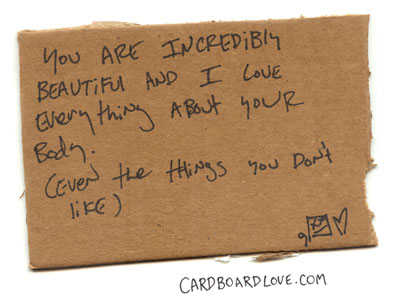 YOU ARE INCREDIBLY
BEAUTIFUL AND I LOVE
EVERYTHING ABOUT YOUR
BODY.
(EVEN the tHINGS YOU DON't
LIKE)
CARDBOARDLOVE.COM